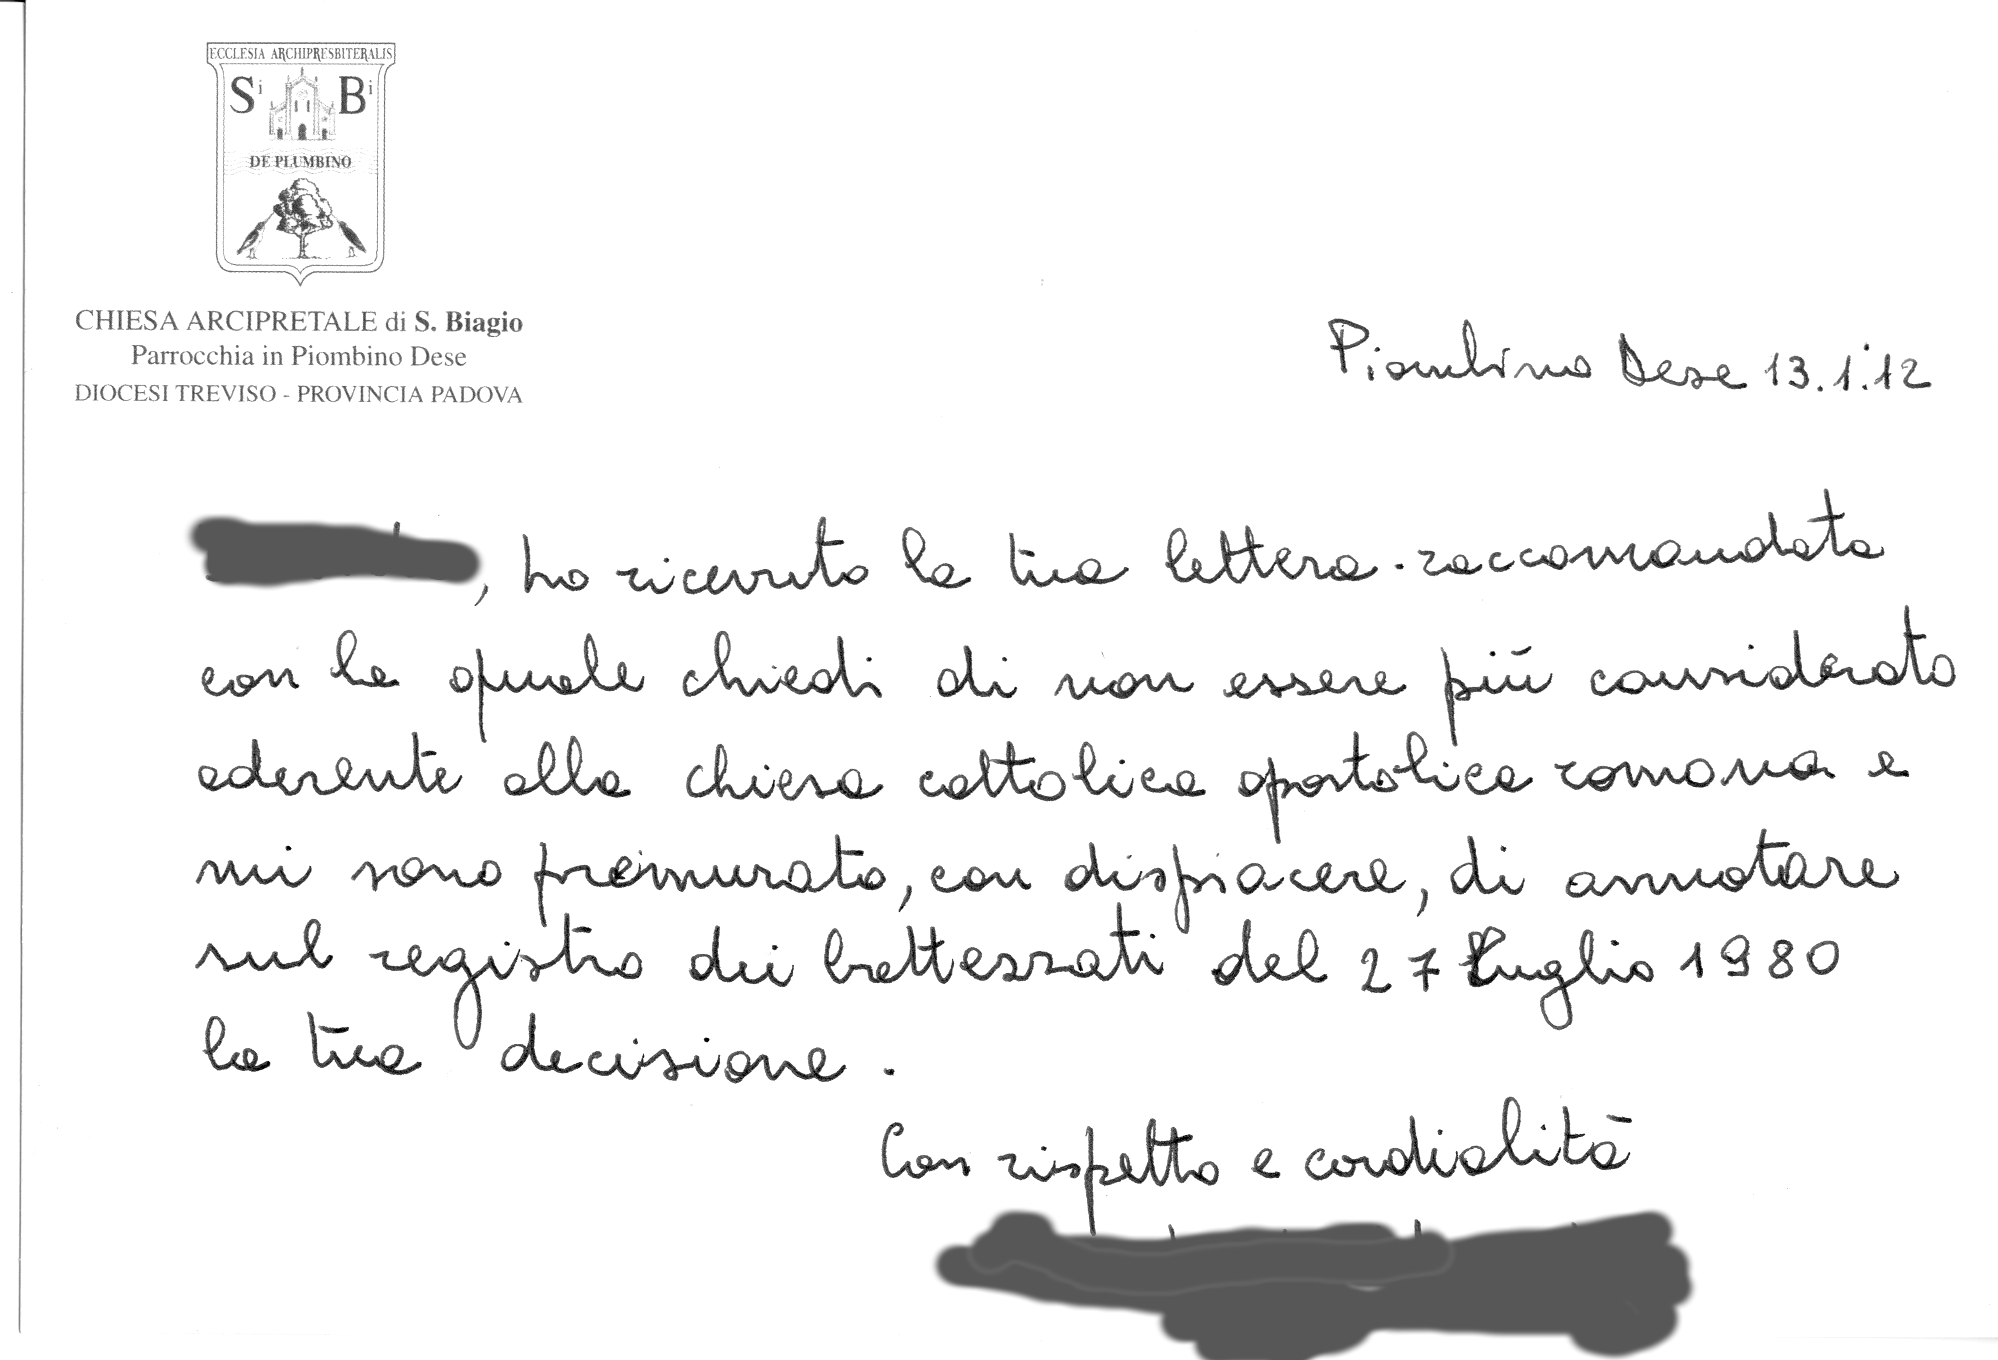 ECCLESIA ARCHIPRESBITERALIS
Si Bi
DE PLUMBINO
CHIESA ARCIPRETALE di S. Biagio
Parrocchia in Piombino Dese
DIOCESI TREVISO - PROVINCIA PADOVA
Piombino Dese 13.1.12
, ho ricevuto la tua lettera-raccomandata
con la quale chiedi di non essere più considerato
aderente alla chiesa cattolica apostolica romana e
mi sono premurato, con dispiacere, di annotare
sul registro dei battezzati del 27 Luglio 1980
la tua decisione.
Con rispetto e cordialità